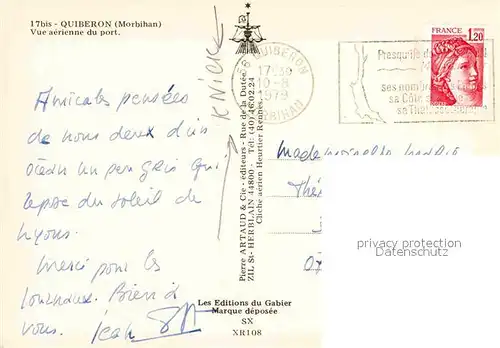 17bis - QUIBERON (Morbihan)
Vue aérienne du port.
Amicales pensées
de nous deux d'un
océan un peu gris qui
repose du soleil de
Lyons.
Merci pour les
journaux. Bien à
vous. Jean
Pierre ARTAUD & Cie - éditeurs - Rue de la Dutée
ZIL St-HERBLAIN 44800 - Tél: (40) 46.02.24
Cliché aérien Heurtier Rennes.
Les Editions du Gabier
Marque déposée
SX
XR108
56 QUIBERON
17-30
10-8
1979
MORBIHAN
Presqu'île
ses
sa Côte
sa Thal
FRANCE
1,20
Mademoiselle
Thé
07
privacy protection
Datenschutz